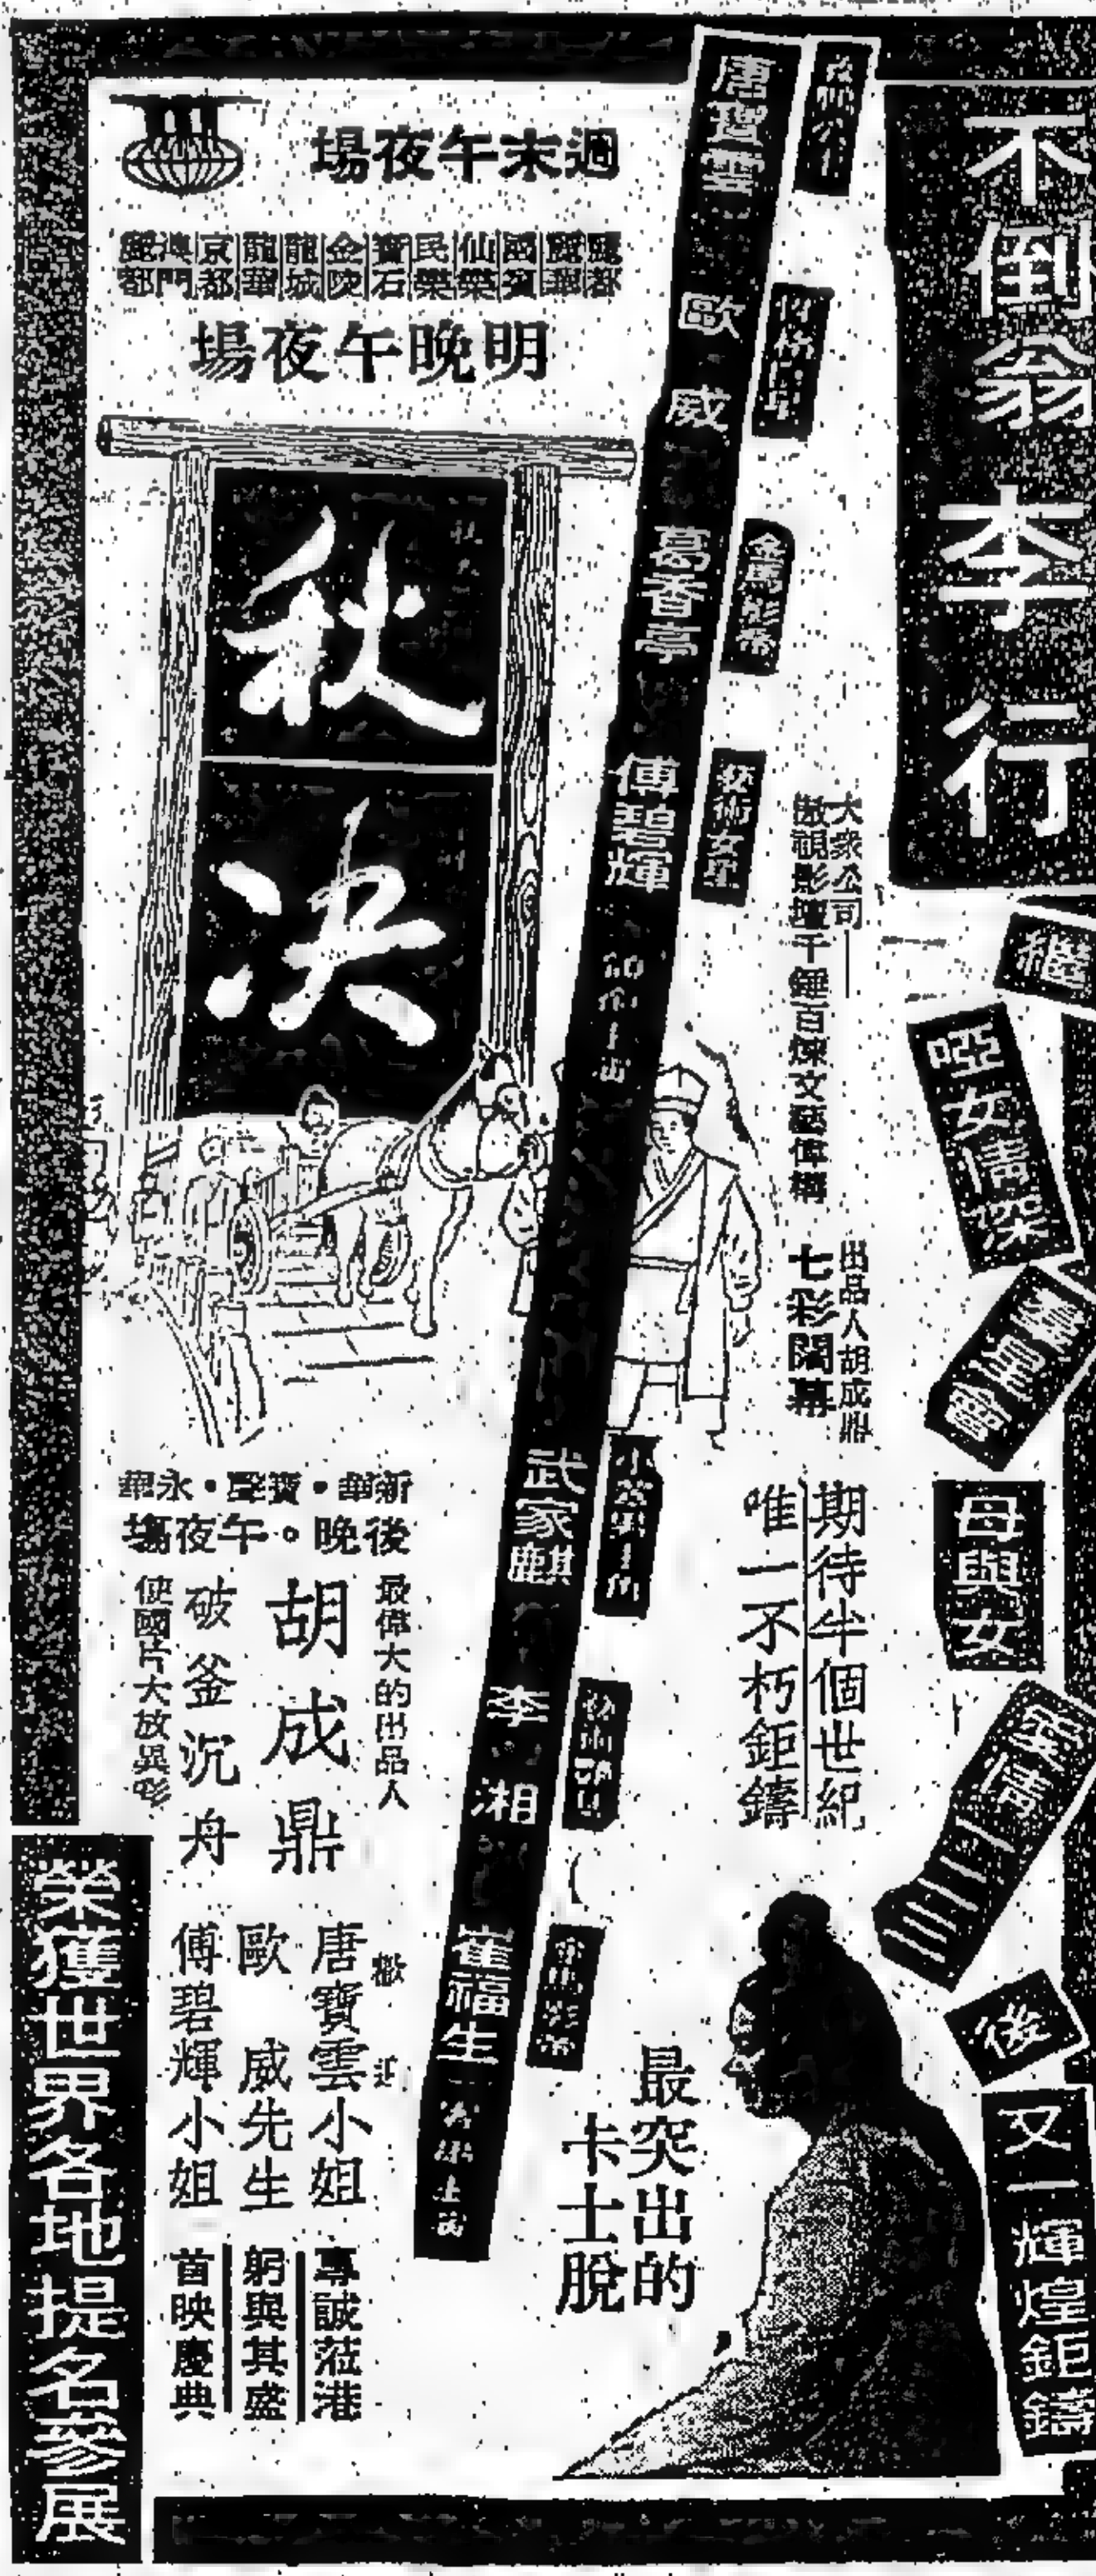 不倒翁李行
繼
啞女情深
養星會
母與女
後
又一輝煌鉅鑄
大眾公司
傲視影壇千錘百煉文藝偉構
出品人胡成鼎
七彩闊幕
期待半個世紀
唯一不朽鉅鑄
最突出的
卡士脫
唐寶雲
歐威
金馬影帝
葛香亭
技術女星
傅碧輝
武家麒
李湘
崔福生
週末午夜場
麗都
麗華
國賓
仙樂
民樂
寶石
金陵
龍城
龍華
京都
澳門
麗都
明晚午夜場
秋決
新華・寶聲・永華
後晚。午夜場
最偉大的出品人
胡成鼎
破釜沉舟
使國片大放異彩
唐寶雲小姐
歐威先生
傅碧輝小姐
專誠蒞港
躬與其盛
首映慶典
榮獲世界各地提名參展